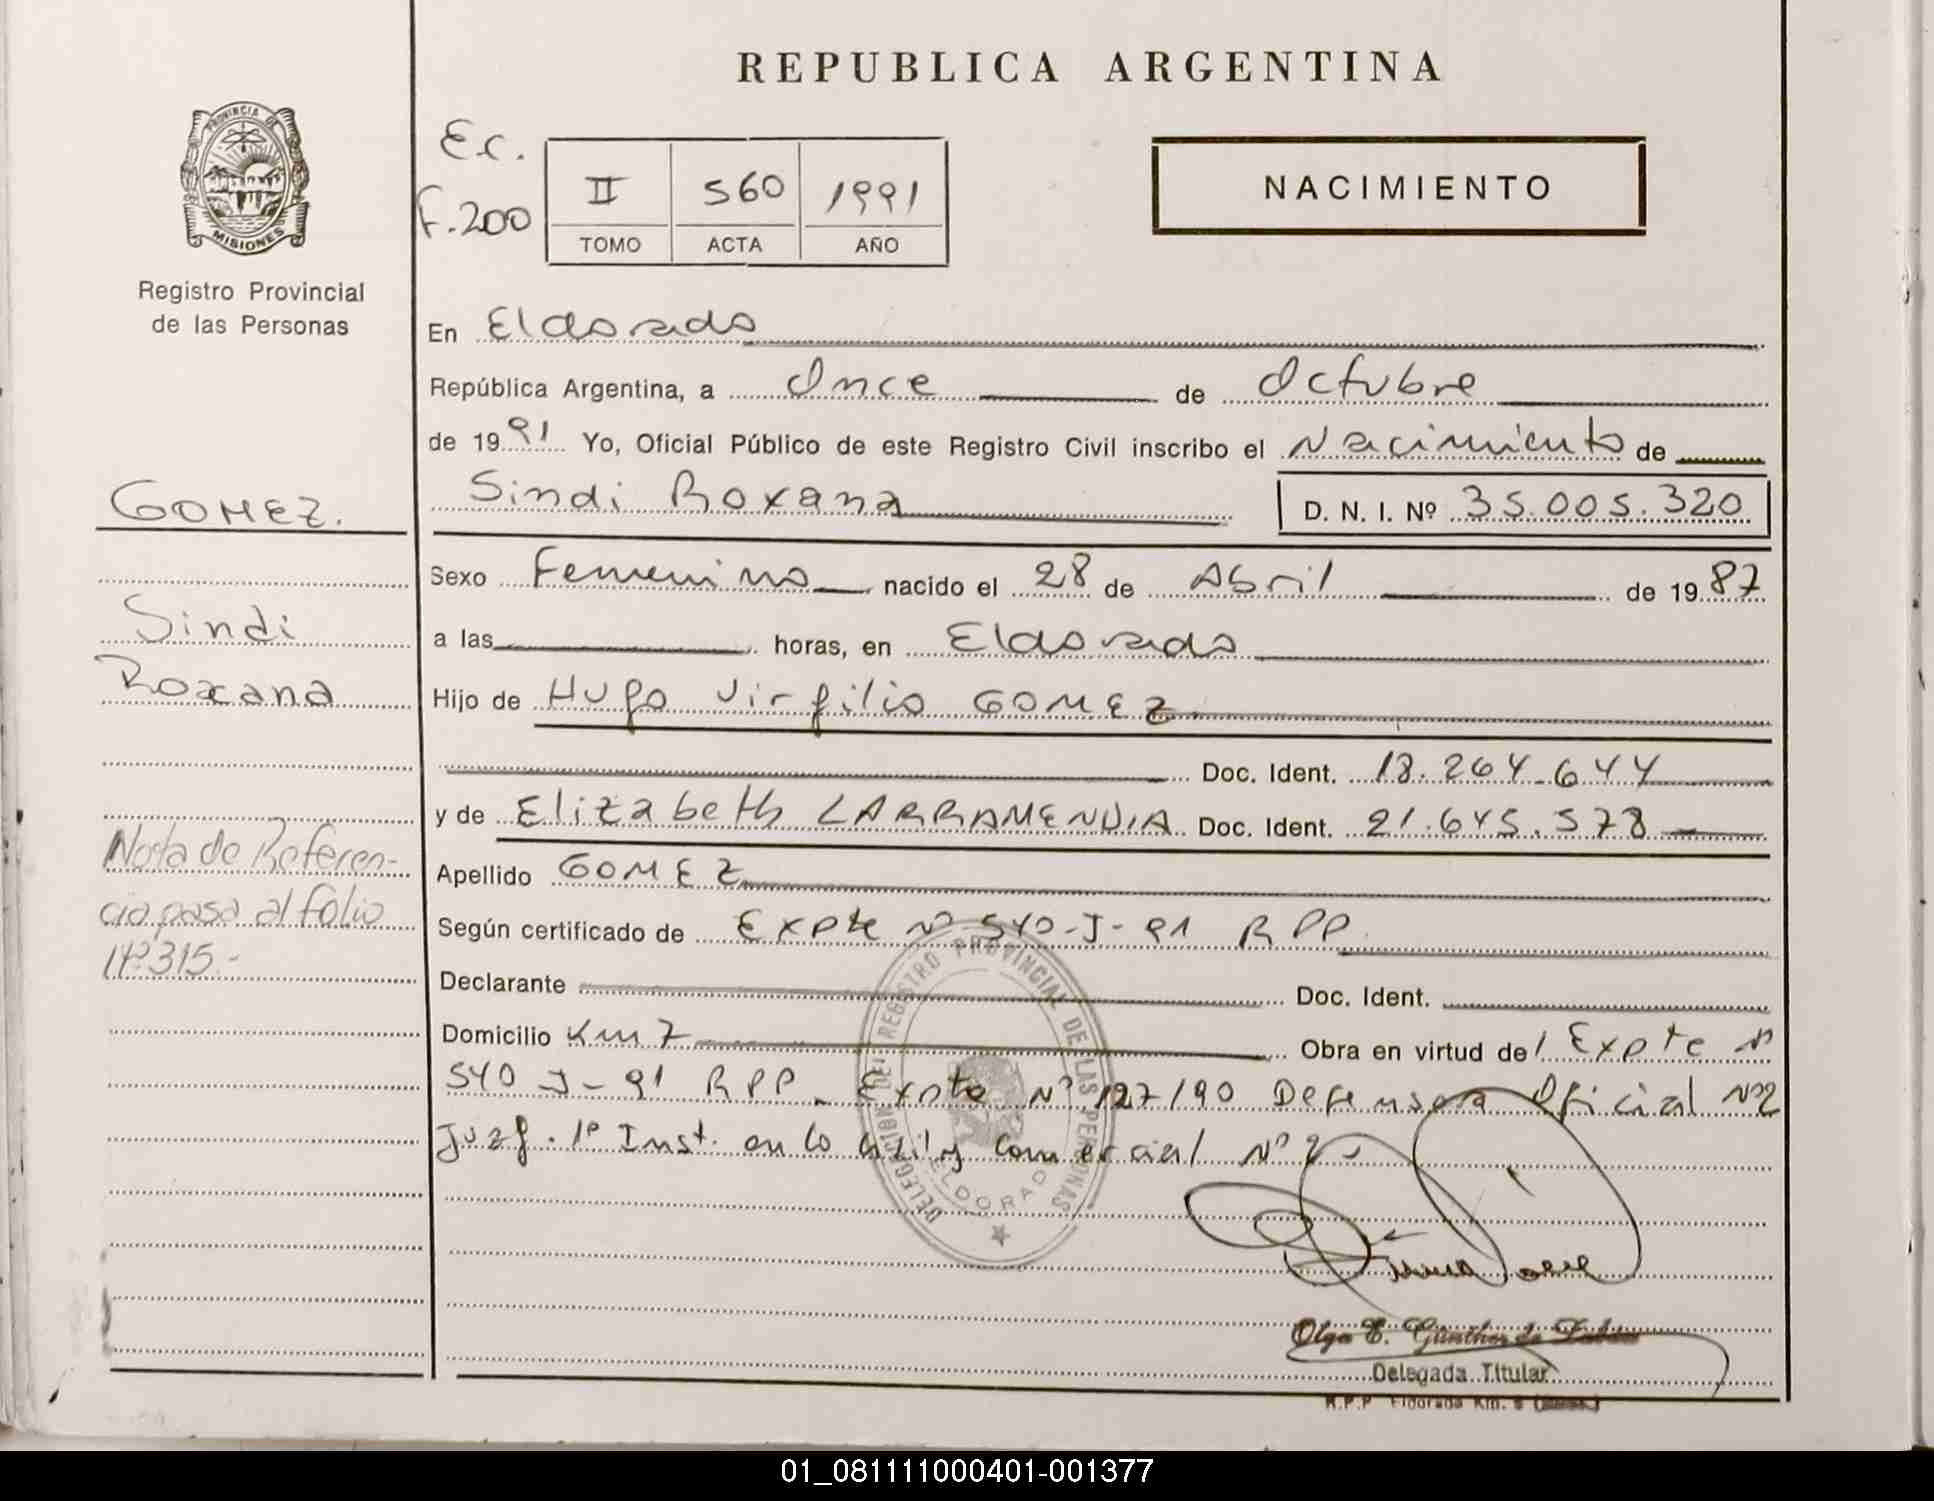 REPUBLICA ARGENTINA
PROVINCIA DE
MISIONES
Registro Provincial
de las Personas
Ec.
F.200
II 560 1991
TOMO ACTA AÑO
NACIMIENTO
En Eldorado
República Argentina, a Once de Octubre
de 1991 Yo, Oficial Público de este Registro Civil inscribo el Nacimiento de
Sindi Roxana D. N. I. Nº 35.005.320
GOMEZ.
Sexo Femenino nacido el 28 de Abril de 1987
Sindi
a las horas, en Eldorado
Roxana
Hijo de Hugo Virgilio GOMEZ
Doc. Ident. 18.264.644
y de Elizabeth LARRAMENDIA Doc. Ident. 21.645.578
Nota de Referen-
cia pasa al folio
Nº 315.-
Apellido GOMEZ
Según certificado de Expte Nº 540-J-91 RPP
Declarante Doc. Ident.
Domicilio Km 7 Obra en virtud de Expte Nº
540 J-91 RPP. Expte Nº 127/90 Defensora Oficial Nº2
Juzg. 1º Inst. en lo Civil y Comercial Nº 2
DELEGACION DEL REGISTRO PROVINCIAL DE LAS PERSONAS
ELDORADO
Olga E. Günther de
Delegada Titular
R.P.P Eldorado Km.
01_081111000401-001377